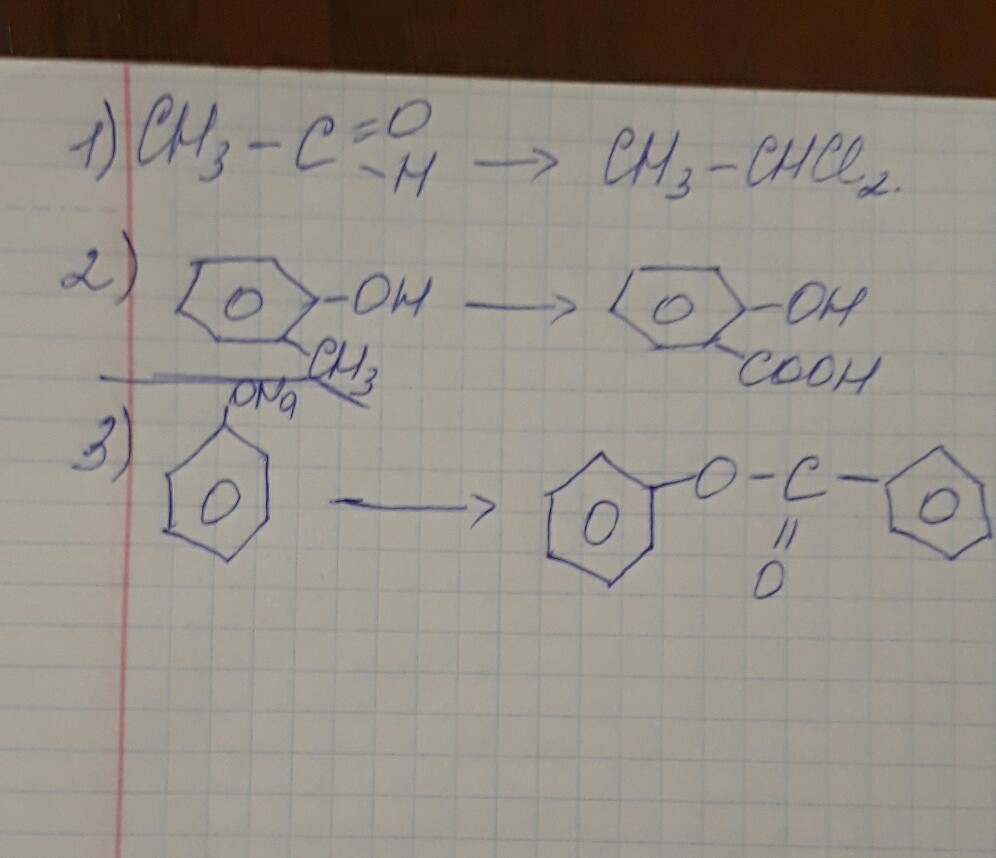 1) CH₃-C=O-H → CH₃-CHCl₂.
2) -OH CH₃ → -OH COOH
3) ONa → -O-C-=O